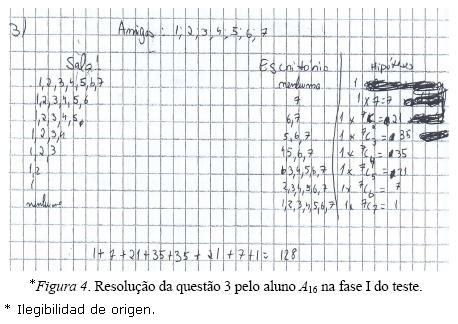 3)
Amigos: 1; 2; 3; 4; 5; 6; 7
Sala! Escritório Hipóteses
1,2,3,4,5,6,7 nenhuma 1
1,2,3,4,5,6 7 1 x 7 = 7
1,2,3,4,5, 6,7 1 x ⁷C₂ = 21
1,2,3,4 5,6,7 1 x ⁷C₃ = 35
1,2,3 4,5,6,7 1 x ⁷C₄ = 35
1,2 3,4,5,6,7 1 x ⁷C₅ = 21
1 2,3,4,5,6,7 1 x ⁷C₆ = 7
nenhuma 1,2,3,4,5,6,7 1 x ⁷C₇ = 1
1+7+21+35+35+21+7+1= 128
*Figura 4. Resolução da questão 3 pelo aluno A₁₆ na fase I do teste.
* Ilegibilidad de origen.